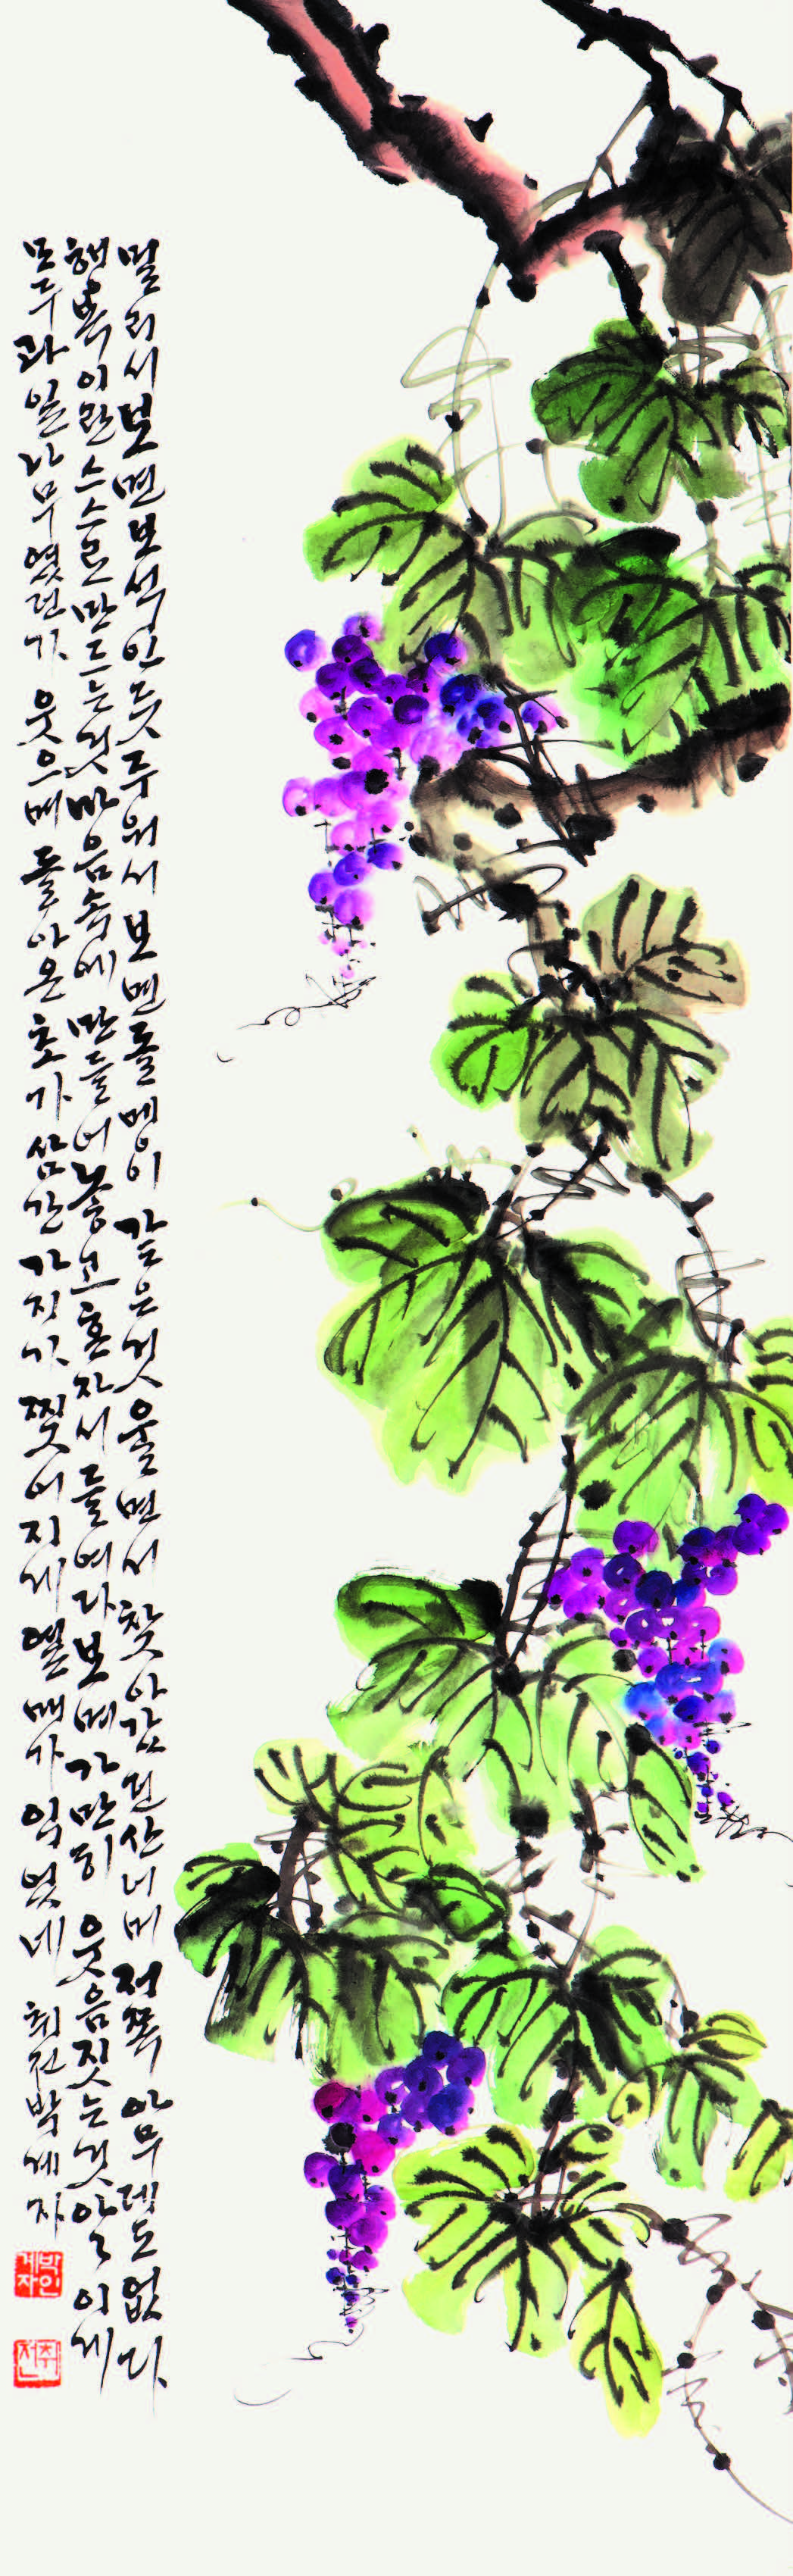 멀리서보면보석인듯주워서보면돌멩이 같은것 울면서 찾아갔던산너머 저쪽 아무데도없다
행복이란스스로만드는것마음속에 만들어놓고혼자서들여다보며가만히 웃음짓는것아이에게
모두과일나무였던가 웃으며 돌아온초가삼간가지가 찢어지게열매가 익었네 취전박계자
박계자인
취전